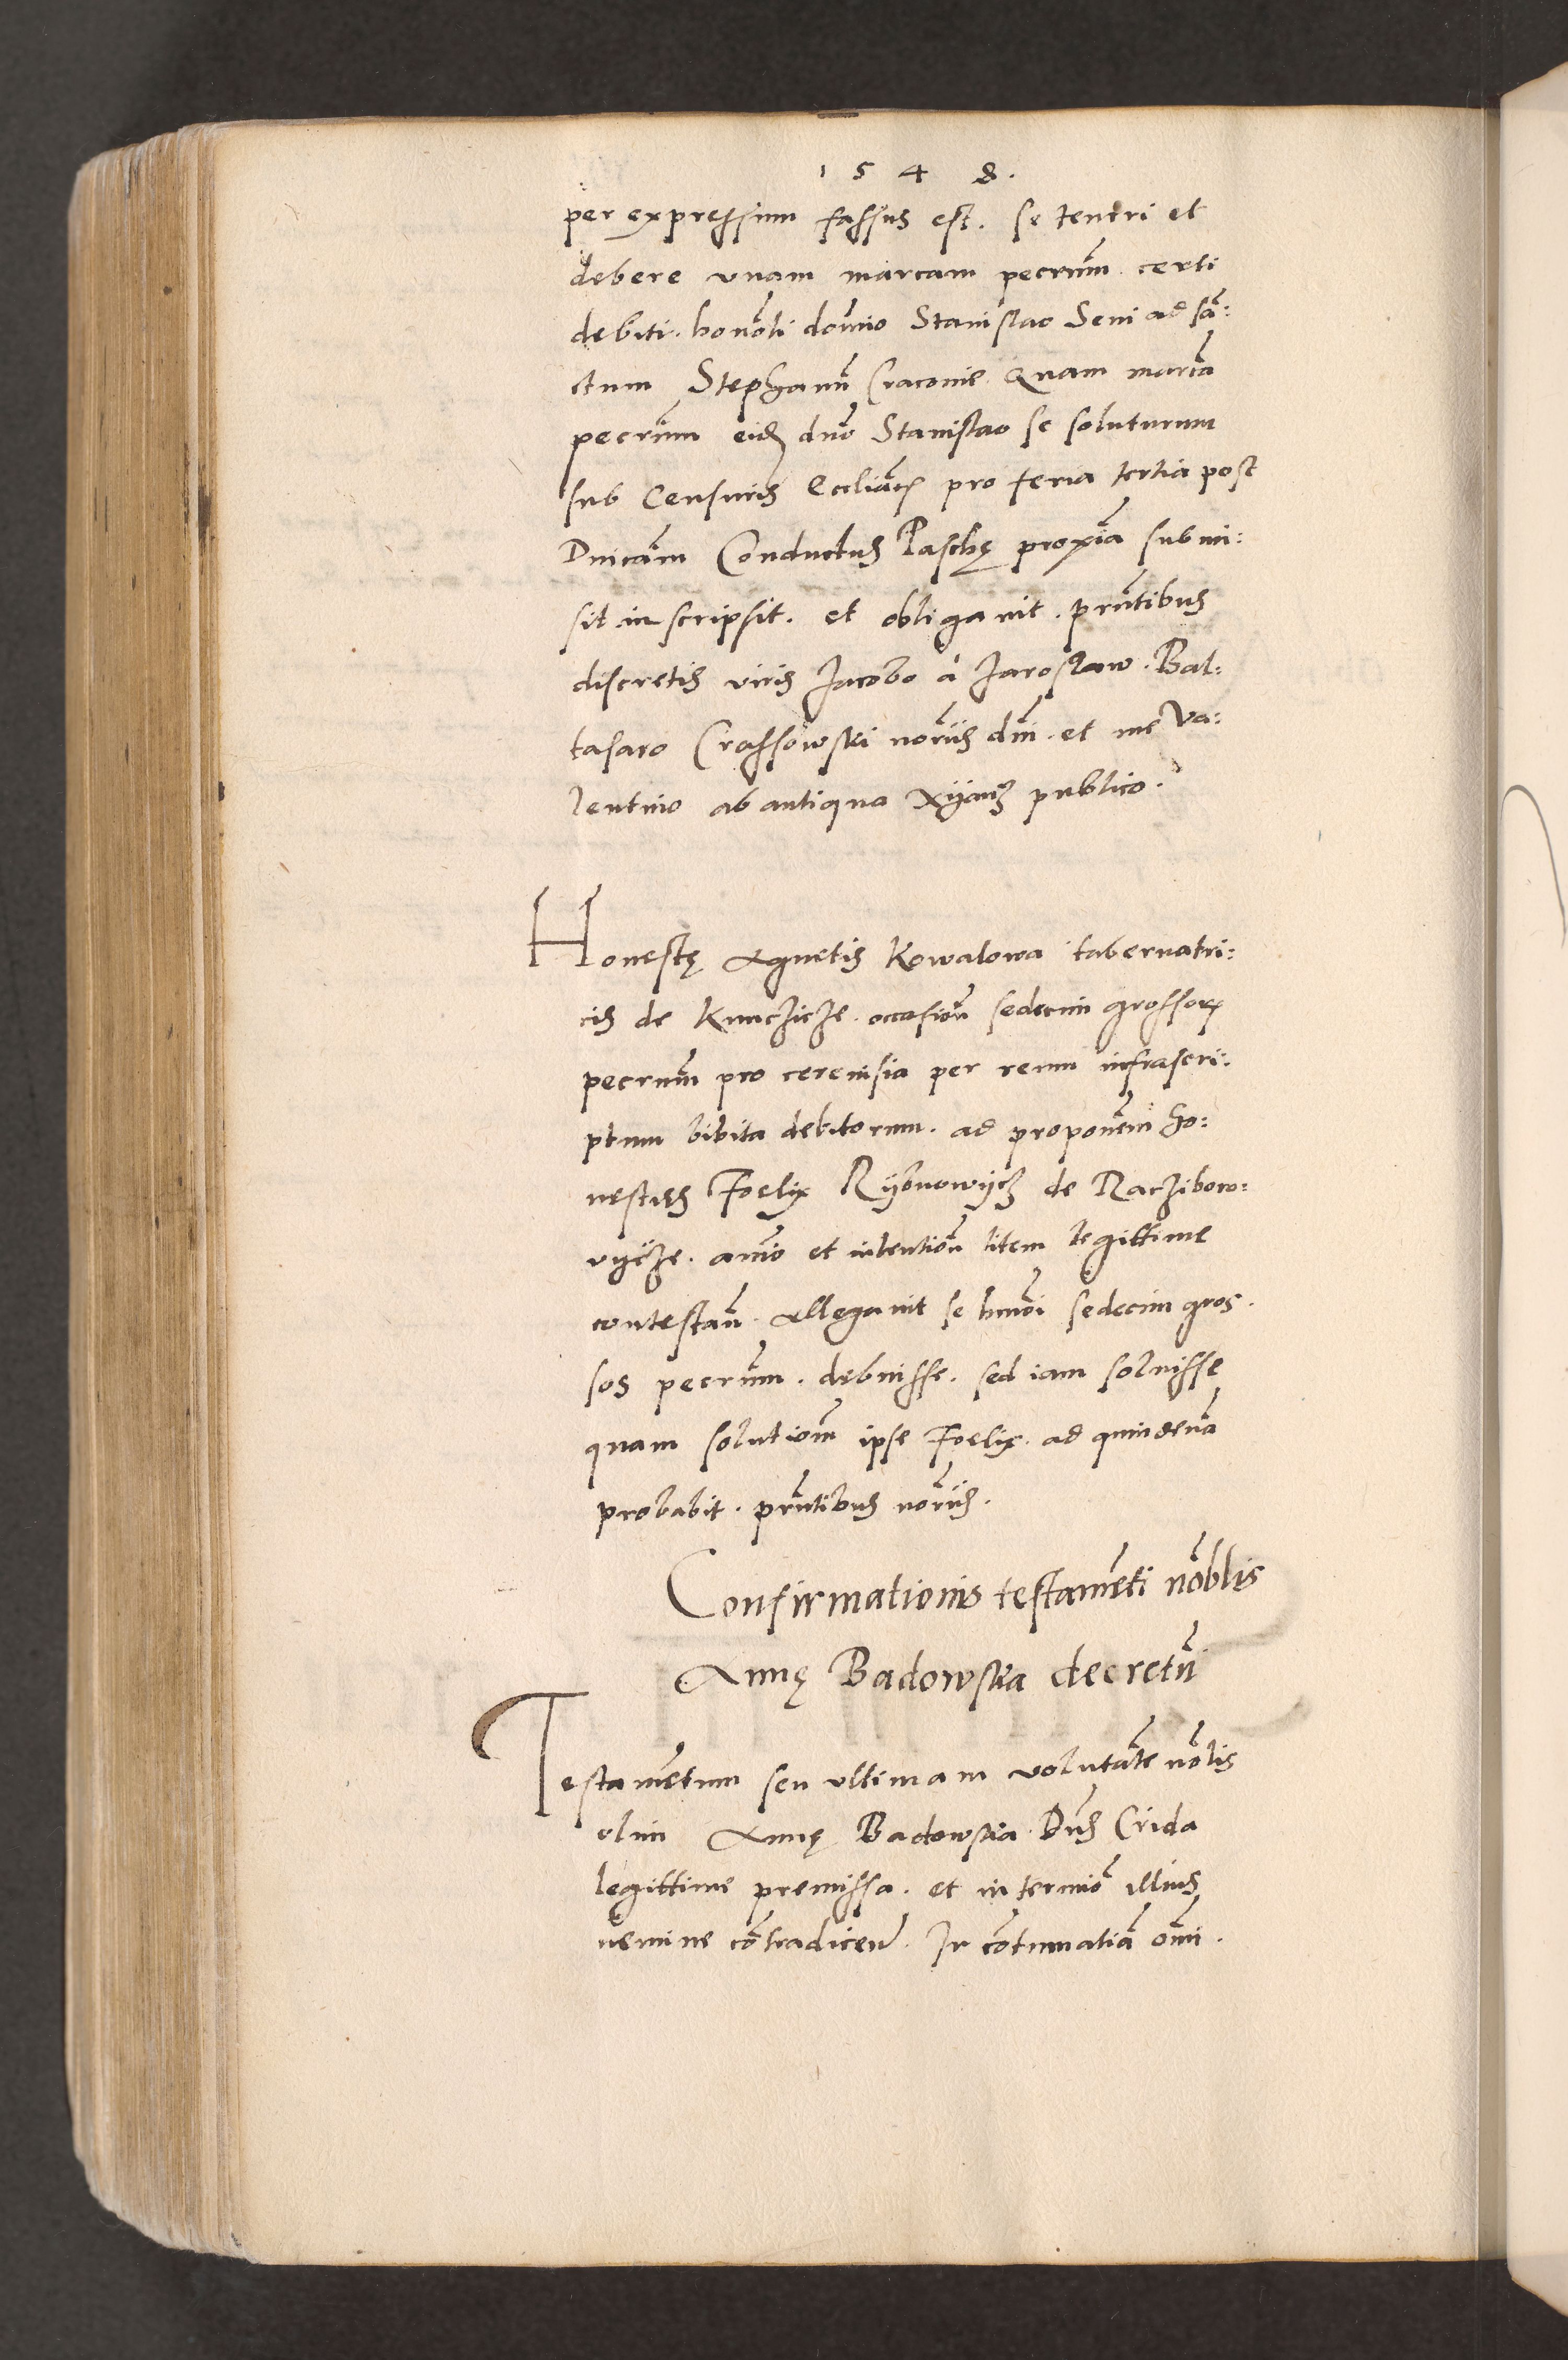 1548.
per expressum fassus est. se teneri et
debere vnam marcam pecrum̃ certi
debiti. honor̃li domĩo Stanislao Seni ad sã:
ctum Stephanũ Cracovie. Quam marcã
pecrum̃ eidẽ dnõ Stanislao se soluturum
sub Censuris Eccliãꝝ pro feria tertia post
Dnicam̃ Conductus Paschę proxiã submi:
sit inscripsit. et obligavit. prñtibus
discretis viris Jacobo à Jaroslaw. Bal:
tasaro Crassowski notr̃iis dñi. et me Va:
lentino ab antiqua Xijanz publico.
Honestę Agnetis Kowalowa tabernatri:
cis de Kunczicze. occasioñ sedecim grossoꝝ
pecrum̃ pro cerevisia per reum infrascri:
ptum bibita debitorum. ad proponem̃ ho:
nestus Foelix Rybnowycz de Racziboro:
vycze. anĩo et intentioñ litem legittime
contestañ. allegavit se hmõi sedecim gros:
sos pecrum̃. debuisse. sed iam soluisse
quam solutioñm ipse Foelix. ad quindenã
probabit. prñtibus notr̃iis.
Confirmationis testamẽti nõblis
Annę Badowska decretũ
Testamẽtum seu vltimam volutãte nõblis
olim Annę Badowska. Dñs Crida
legittime premissa. et in termiõ illius
nemine cõtradiceñ. In cõtumatiã omĩ.